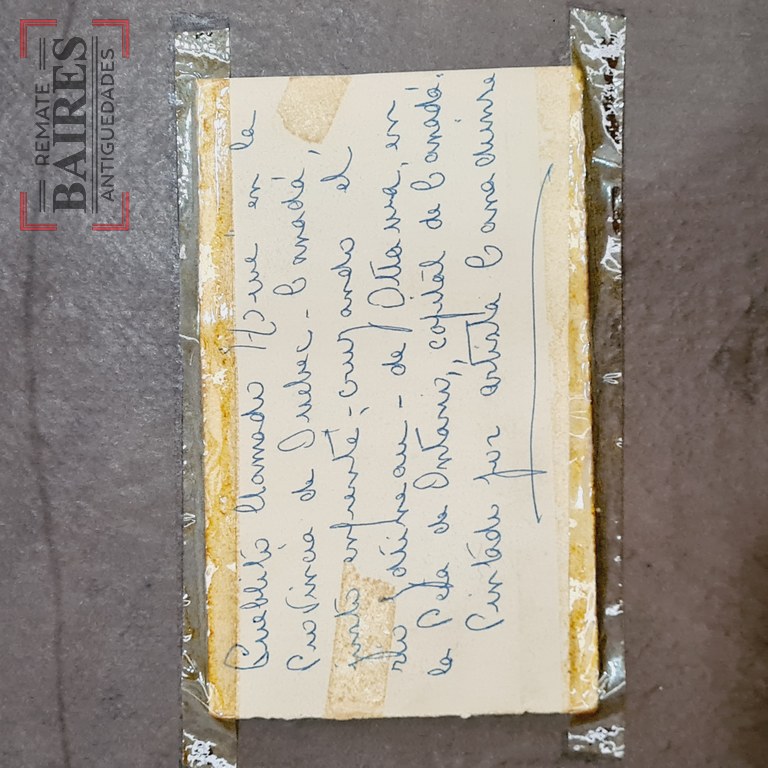 REMATE
BAIRES
ANTIGUEDADES
Pueblito llamado en la
Provincia de Quebec - Canadá,
justo enfrente, cruzando el
río - de Ottawa, en
la Pcia de Ontario, capital de Canadá.
Pintado por artista Canadiense